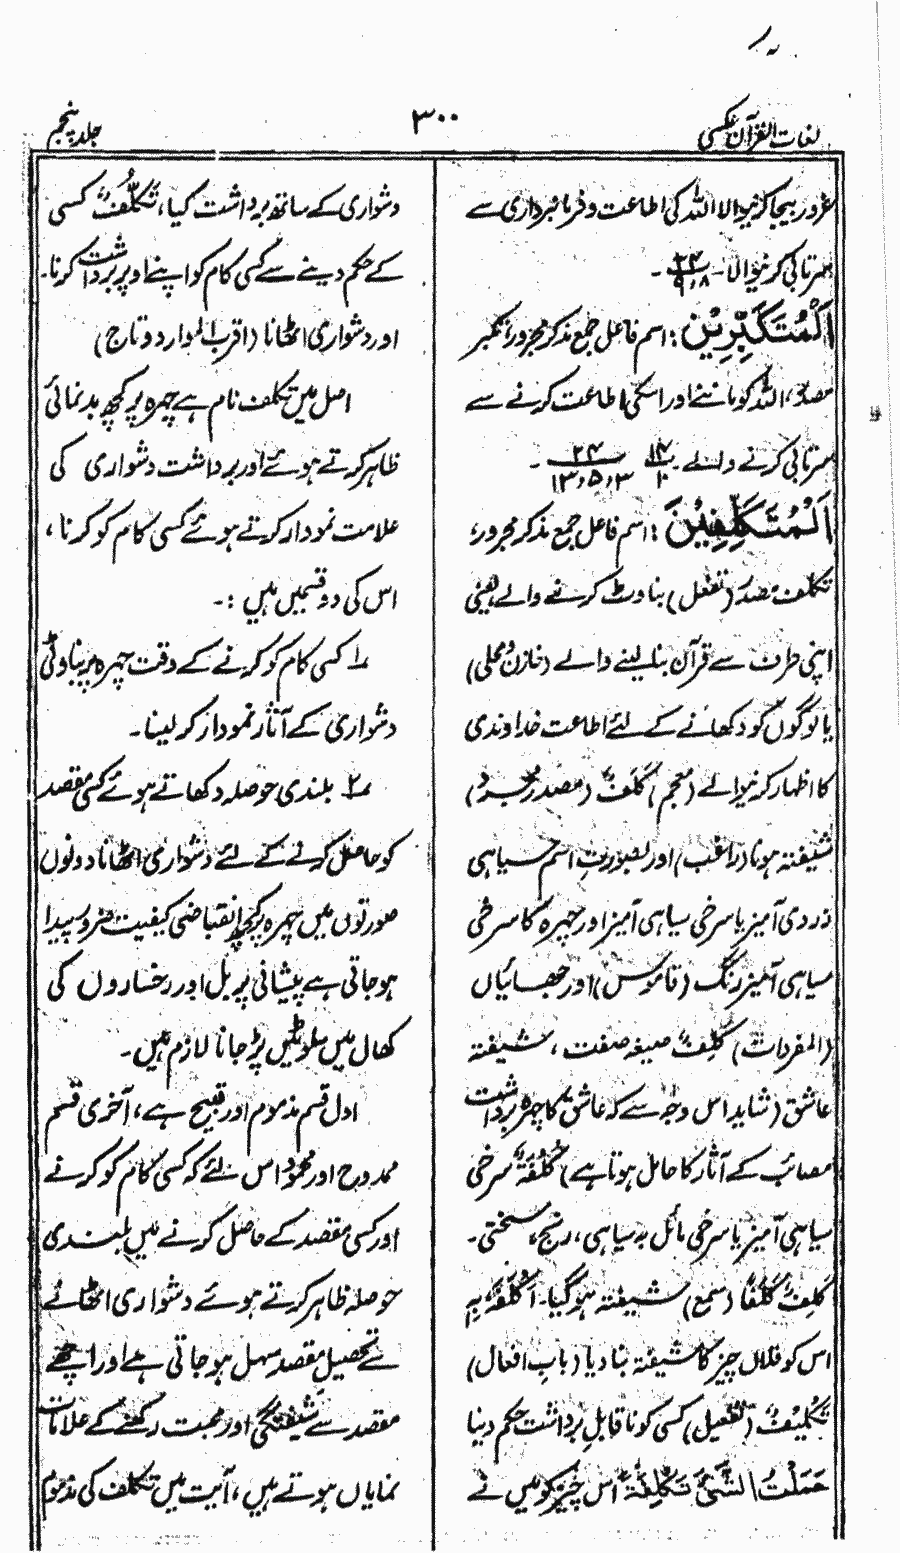 لغات القرآن عکسی
۳۰۰
جلد پنجم
غرور بیجا کرنیوالا اللہ کی اطاعت و فرمانبرداری سے
سرتابی کرنیوالا۔ ۲۴ / ۹،۸ ۔
اَلْمُتَكَبِّرِيْنَ : اسم فاعل جمع مذکر مجرور، تکبر
مصدر، اللہ کو ماننے اور اسکی اطاعت کرنے سے
سرتابی کرنے والے۔ ۱۴ / ۱۰ ۲۴ / ۱۳،۵،۳ ۔
اَلْمُتَكَلِّفِيْنَ : اسم فاعل جمع مذکر مجرور،
تکلف مصدر (تفعل) بناوٹ کرنے والے یعنی
اپنی طرف سے قرآن بنا لینے والے (خازن و محلی)
یا لوگوں کو دکھانے کے لئے اطاعت خداوندی
کا اظہار کرنیوالے (معجم) کَلَفٌ (مصدر مجرد)
شیفتہ ہونا (راغب) اور بصورتِ اسم سیاہی
زردی آمیز یا سرخی سیاہی آمیز اور چہرہ کا سرخی
سیاہی آمیز رنگ (قاموس) اور جھائیاں
(المفردات) کَلِفٌ صیغہ صفت، شیفتہ
عاشق (شاید اس وجہ سے کہ عاشق کا چہرہ برداشت
مصائب کے آثار کا حامل ہوتا ہے) کُلْفَۃٌ سرخی
سیاہی آمیز یا سرخی مائل بہ سیاہی، رنج، سختی۔
کَلِفَ کَلَفًا (سمع) شیفتہ ہو گیا۔ اَکْلَفَہٗ بِہٖ
اس کو فلاں چیز کا شیفتہ بنا دیا (باب افعال)
تَکْلِیْفٌ (تفعیل) کسی کو ناقابلِ برداشت حکم دینا
حَمَلْتُ الشَّیْءَ تَکْلِفَۃً اس چیز کو میں نے
دشواری کے ساتھ برداشت کیا، تَکَلُّفٌ کسی
کے حکم دینے سے کسی کام کو اپنے اوپر برداشت کرنا۔
اور دشواری اٹھانا (اقرب الموارد و تاج)
اصل میں تکلف نام ہے چہرہ پر کچھ بدنمائی
ظاہر کرتے ہوئے اور برداشت دشواری کی
علامت نمودار کرتے ہوئے کسی کام کو کرنا،
اس کی دو قسمیں ہیں :۔
۱ کسی کام کو کرنے کے وقت چہرہ پر بناوٹی
دشواری کے آثار نمودار کر لینا۔
۲ بلندی حوصلہ دکھاتے ہوئے کسی مقصد
کو حاصل کرنے کے لئے دشواری اٹھانا دونوں
صورتوں میں چہرہ پر کچھ انقباضی کیفیت ضرور پیدا
ہو جاتی ہے پیشانی پر بل اور رخساروں کی
کھال میں سلوٹیں پڑ جانا لازم ہیں۔
اول قسم مذموم اور قبیح ہے، آخری قسم
ممدوح اور محمود اس لئے کہ کسی کام کو کرنے
اور کسی مقصد کے حاصل کرنے میں بلندی
حوصلہ ظاہر کرتے ہوئے دشواری اٹھانے
سے تحصیل مقصد سہل ہو جاتی ہے اور اچھے
مقصد سے شیفتگی اور محبت رکھنے کے علامات
نمایاں ہوتے ہیں، آیت میں تکلف کی مذموم